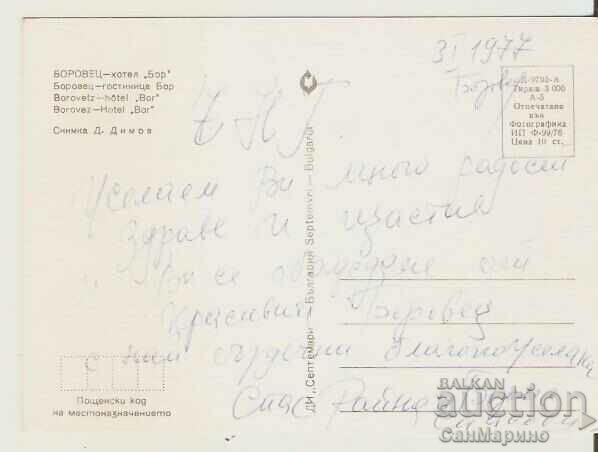 БОРОВЕЦ—хотел „Бор"
Боровец—гостиница Бор
Borovetz—hôtel „Bor"
Borovez—Hotel „Bor"
Снимка Д. Димов
ДИ „Септември" — България Septemvri — Bulgaria
3 I 1977
Боровец
К-9792-А
Тираж 3 000
А-5
Отпечатано
във
Фотографика
ИП Ф-99/76
Цена 10 ст.
Ч Н Г
Желаем Ви много радост
здраве и щастие
се от
красивия Боровец
с най сърдечни благопожелания
Спас Райна
Пощенски код
на местоназначението
BALKAN
auction
СанМарино